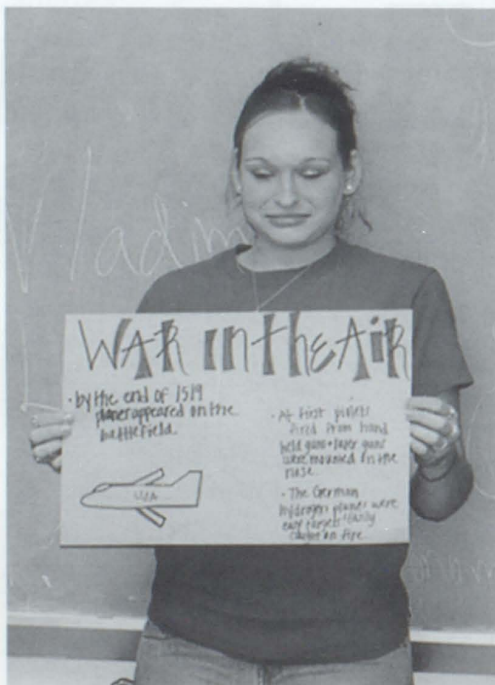 Vladim
WAR in the AiR
· by the end of 1519
planes appeared on the
battlefield.
· At first pilots
fired from hand
held guns + later guns
were mounted on the
nose.
· The German
hydrogen planes were
easy targets easily
caught on fire